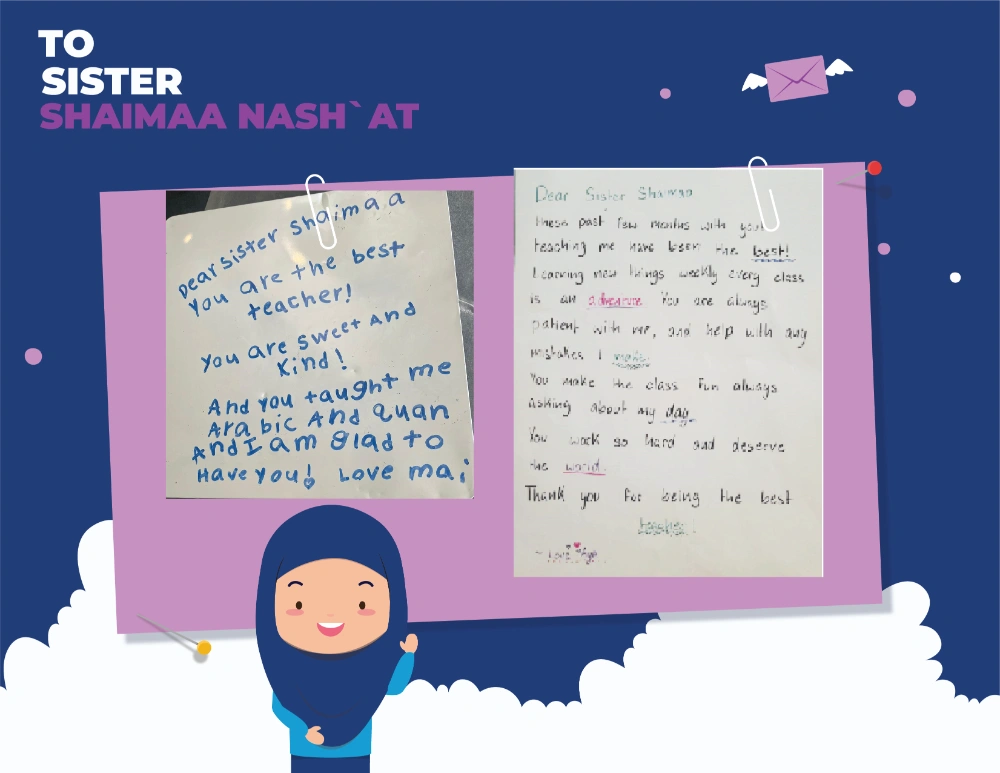 TO
SISTER
SHAIMAA NASH`AT
Dear sister Shaimaa
You are the best
teacher!
You are sweet And
Kind!
And You taught me
Arabic And Quan
And I am glad to
Have you! Love mai
Dear Sister Shaimaa
these past few months with you
teaching me have been the best!
Learning new things weekly every class
is an adventure. You are always
patient with me, and help with any
mistakes I make.
You make the class fun always
asking about my day.
You work so hard and deserve
the world.
Thank you for being the best
teacher!
~ Love